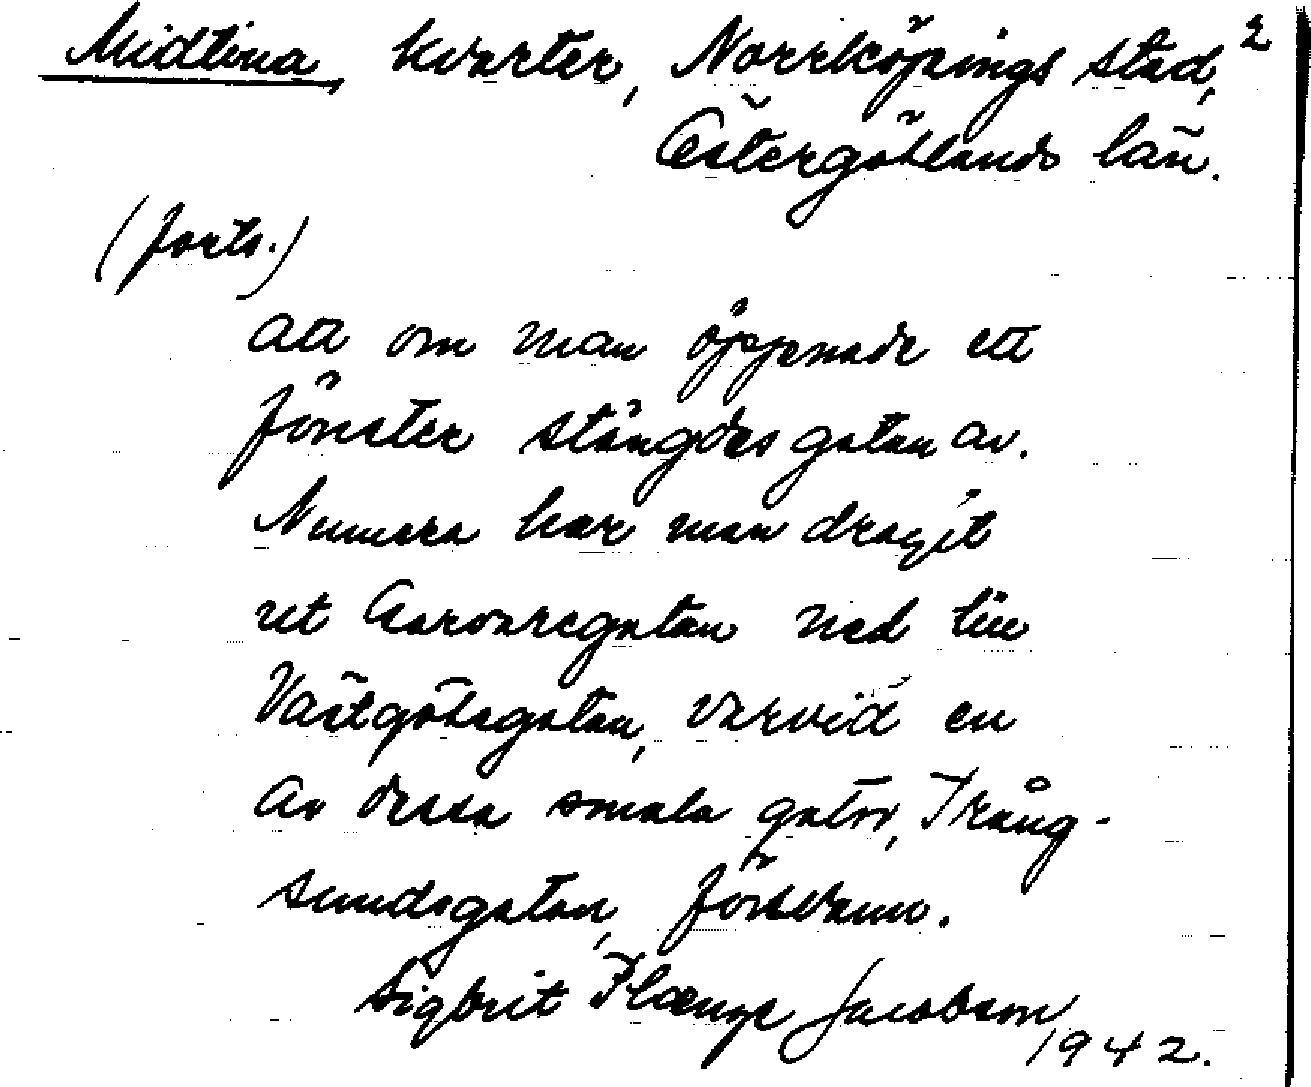 Midtina kvarter, Norrköpings stad, 2
Östergötlands län.
(forts.)
att om man öppnade ett
fönster stängdes gatan av.
Numera har man dragit
ut Garvaregatan ned till
Västgötegatan, varvid en
av dessa smala gator, Trång-
sundsgatan, försvann.
Sigbrit Plænge Jacobson
1942.